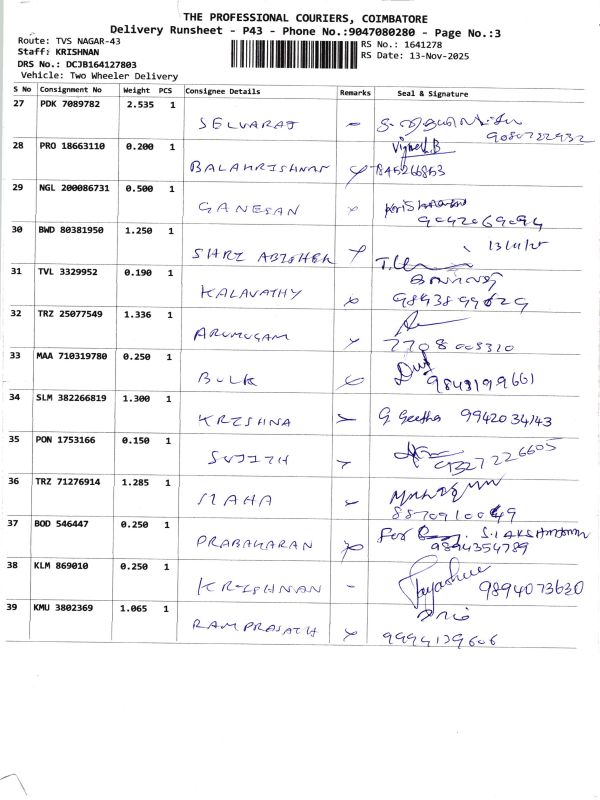 THE PROFESSIONAL COURIERS, COIMBATORE
Delivery Runsheet - P43 - Phone No.:9047080280 - Page No.:3
Route: TVS NAGAR-43
Staff: KRISHNAN
DRS No.: DCJB164127803
Vehicle: Two Wheeler Delivery
RS No.: 1641278
RS Date: 13-Nov-2025
S No Consignment No Weight PCS Consignee Details Remarks Seal & Signature
27 PDK 7089782 2.535 1
SELVARAJ
9080722932
28 PRO 18663110 0.200 1
Vignesh.B
BALAKRISHNAN
29 NGL 200086731 0.500 1
GANESAN
9042069094
30 BWD 80381950 1.250 1
13/11/25
SHRI ABISHEK
31 TVL 3329952 0.190 1
KALAVATHY 9893899629
32 TRZ 25077549 1.336 1
ARUMUGAM 7708008310
33 MAA 710319780 0.250 1
BULK 9843199661
34 SLM 382266819 1.300 1
KRISHNA G Geetha 9942034143
35 PON 1753166 0.150 1
SUJITH 9327226605
36 TRZ 71276914 1.285 1
MAHA
37 BOD 546447 0.250 1
For
PRABAKARAN 9894354789
38 KLM 869010 0.250 1
KRISHNAN Jayashree 9894073630
39 KMU 3802369 1.065 1
RAMPRASATH 9994139606